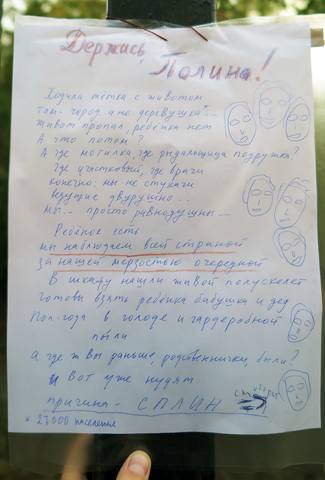 Держись, Полина!
Ходила тётка с животом
там город а не деревушка*...
живот пропал, ребёнка нет
А что потом?
А где могилка, где рыдальщица подружка?
Где участковый, где врачи
конечно, мы не стукачи
ведущие двурушно...
мы... просто равнодушны...
Ребёнок есть
мы наблюдаем всей страной
за нашей мерзостью очередной
В шкафу нашли живой полускелет
готовы взять ребёнка бабушка и дед
Пол-года в голоде и гардеробной
пыли
А где ж вы раньше, родственнички, были?
И вот уже нудят
причина - СПЛИН
* 27000 населения